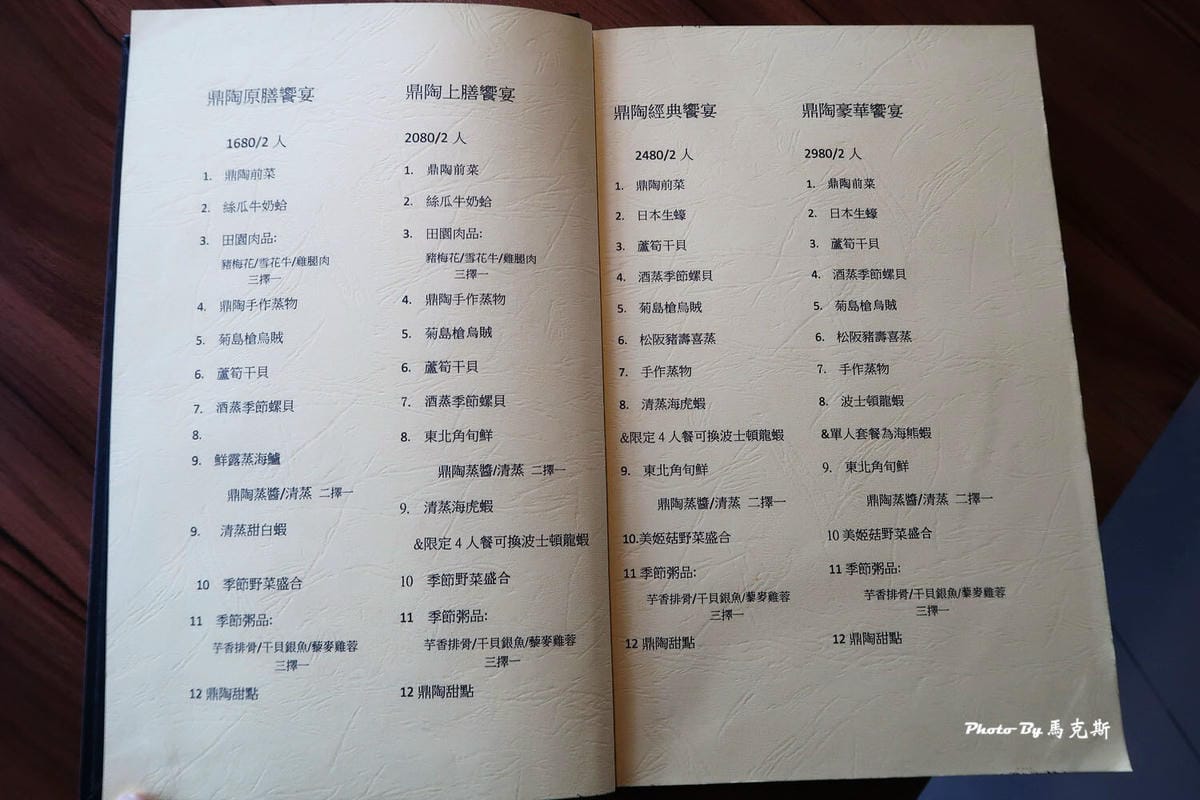 鼎陶原膳饗宴
1680/2 人
1. 鼎陶前菜
2. 絲瓜牛奶蛤
3. 田園肉品:
豬梅花/雪花牛/雞腿肉
三擇一
4. 鼎陶手作蒸物
5. 菊島槍烏賊
6. 蘆筍干貝
7. 酒蒸季節螺貝
8.
9. 鮮露蒸海鱸
鼎陶蒸醬/清蒸 二擇一
9. 清蒸甜白蝦
10 季節野菜盛合
11 季節粥品:
芋香排骨/干貝銀魚/藜麥雞蓉
三擇一
12 鼎陶甜點
鼎陶上膳饗宴
2080/2 人
1. 鼎陶前菜
2. 絲瓜牛奶蛤
3. 田園肉品:
豬梅花/雪花牛/雞腿肉
三擇一
4. 鼎陶手作蒸物
5. 菊島槍烏賊
6. 蘆筍干貝
7. 酒蒸季節螺貝
8. 東北角旬鮮
鼎陶蒸醬/清蒸 二擇一
9. 清蒸海虎蝦
&限定 4 人餐可換波士頓龍蝦
10 季節野菜盛合
11 季節粥品:
芋香排骨/干貝銀魚/藜麥雞蓉
三擇一
12 鼎陶甜點
鼎陶經典饗宴
2480/2 人
1. 鼎陶前菜
2. 日本生蠔
3. 蘆筍干貝
4. 酒蒸季節螺貝
5. 菊島槍烏賊
6. 松阪豬壽喜蒸
7. 手作蒸物
8. 清蒸海虎蝦
&限定 4 人餐可換波士頓龍蝦
9. 東北角旬鮮
鼎陶蒸醬/清蒸 二擇一
10.美姬菇野菜盛合
11 季節粥品:
芋香排骨/干貝銀魚/藜麥雞蓉
三擇一
12 鼎陶甜點
鼎陶豪華饗宴
2980/2 人
1. 鼎陶前菜
2. 日本生蠔
3. 蘆筍干貝
4. 酒蒸季節螺貝
5. 菊島槍烏賊
6. 松阪豬壽喜蒸
7. 手作蒸物
8. 波士頓龍蝦
&單人套餐為海熊蝦
9. 東北角旬鮮
鼎陶蒸醬/清蒸 二擇一
10 美姬菇野菜盛合
11 季節粥品:
芋香排骨/干貝銀魚/藜麥雞蓉
三擇一
12 鼎陶甜點
Photo By 馬克斯